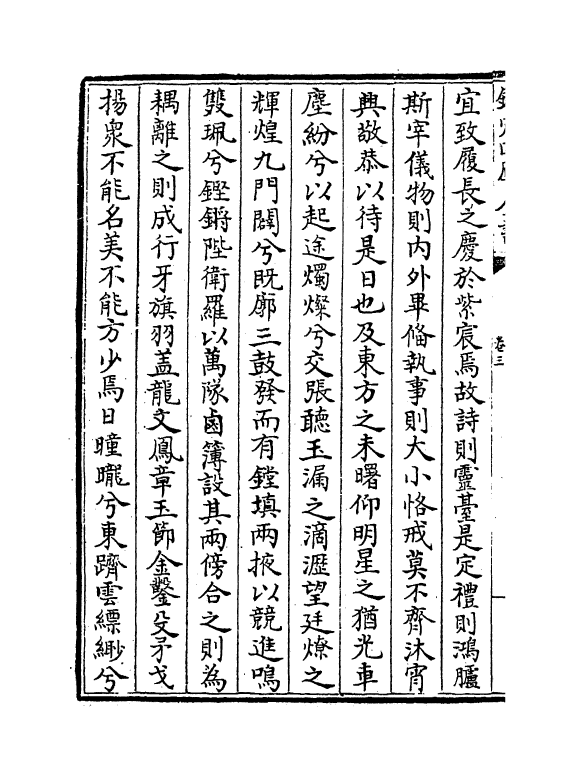 宜致履長之慶於紫宸焉故詩則靈臺是定禮則鴻臚
斯宰儀物則内外畢俻執事則大小恪戒莫不齊沐宵
興敬恭以待是日也及東方之未曙仰明星之猶光車
塵紛兮以起途燭燦兮交張聽玉漏之滴瀝望廷燎之
輝煌九門闢兮既廓三鼓發而有鏜填兩掖以競進鳴
雙珮兮鏗鏘陛衛羅以萬隊鹵簿設其兩傍合之則為
耦離之則成行牙旗羽盖龍文鳳章玉節金鑿殳矛戈
揚衆不能名美不能方少焉日曈曨兮東躋雲縹緲兮
卷三